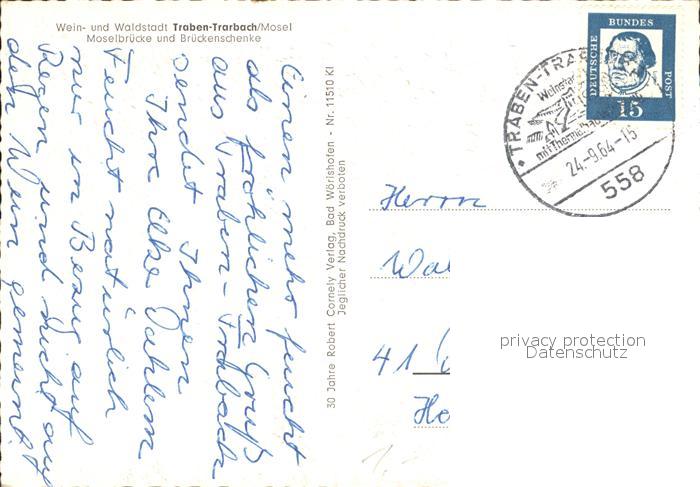 Wein- und Waldstadt Traben-Trarbach/Mosel
Moselbrücke und Brückenschenke
Einen mehr feucht
als fröhlichen Gruß
aus Traben-Trarbach
sendet Ihnen
Ihre Elke Dahlem
Feucht natürlich
nur in Bezug auf
Regen und nicht auf
den Wein gemeint!
30 Jahre Robert Cornely Verlag, Bad Wörishofen - Nr. 11510 Kl
Jeglicher Nachdruck verboten
DEUTSCHE
BUNDES
POST
15
TRABEN-TRAR
Weinstadt
mit Thermalbad
24.-9.64-15
558
Herrn
Wal
41
He
privacy protection
Datenschutz
1.-